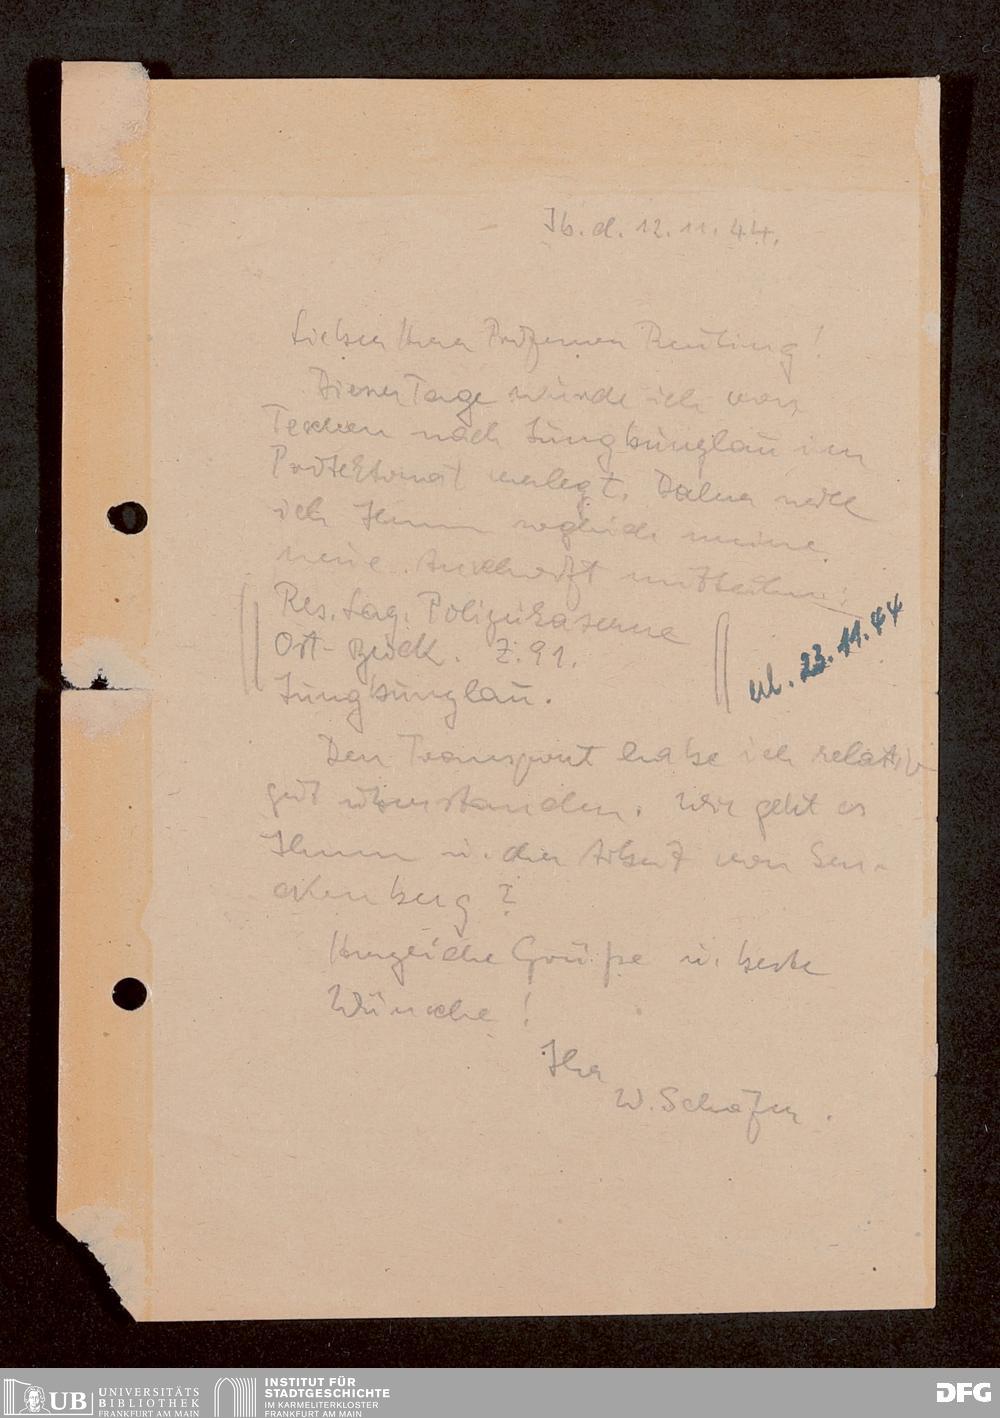 Jb. d. 12.11.44.
Lieber Herr Professor Reuling!
Dieser Tage wurde ich von
Teschen nach Jungbunzlau im
Protektorat verlegt. Daher will
ich Ihnen sogleich meine
neue Anschrift mitteilen:
Res. Laz. Polizeikaserne
Ost-Block. Z. 91.
Jungbunzlau.
erl. 23.11.44
Den Transport habe ich relativ
gut überstanden. Wie geht es
Ihnen u. der Arbeit von Sen-
ckenberg?
Herzliche Grüße u. beste
Wünsche!
Ihr
W. Schäfer.
UB
UNIVERSITÄTS
BIBLIOTHEK
FRANKFURT AM MAIN
INSTITUT FÜR
STADTGESCHICHTE
IM KARMELITERKLOSTER
FRANKFURT AM MAIN
DFG